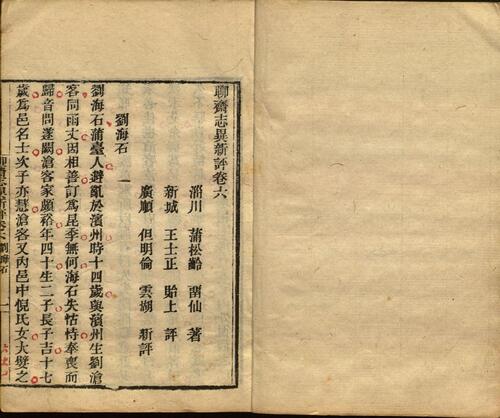 聊齋志異新評卷六
淄川 蒲松齡 留仙 著
新城 王士正 貽上 評
廣順 但明倫 雲湖 新評
劉海石
劉海石蒲臺人避亂於濱州時十四歲與濱州生劉滄
客同函丈因相善訂為昆季無何海石失怙恃奉喪而
歸音問遂闕滄客家頗裕年四十生二子長子吉十七
歲為邑名士次子亦慧滄客又內邑中倪氏女大嬖之
聊齋志異新評卷六 劉海石 一